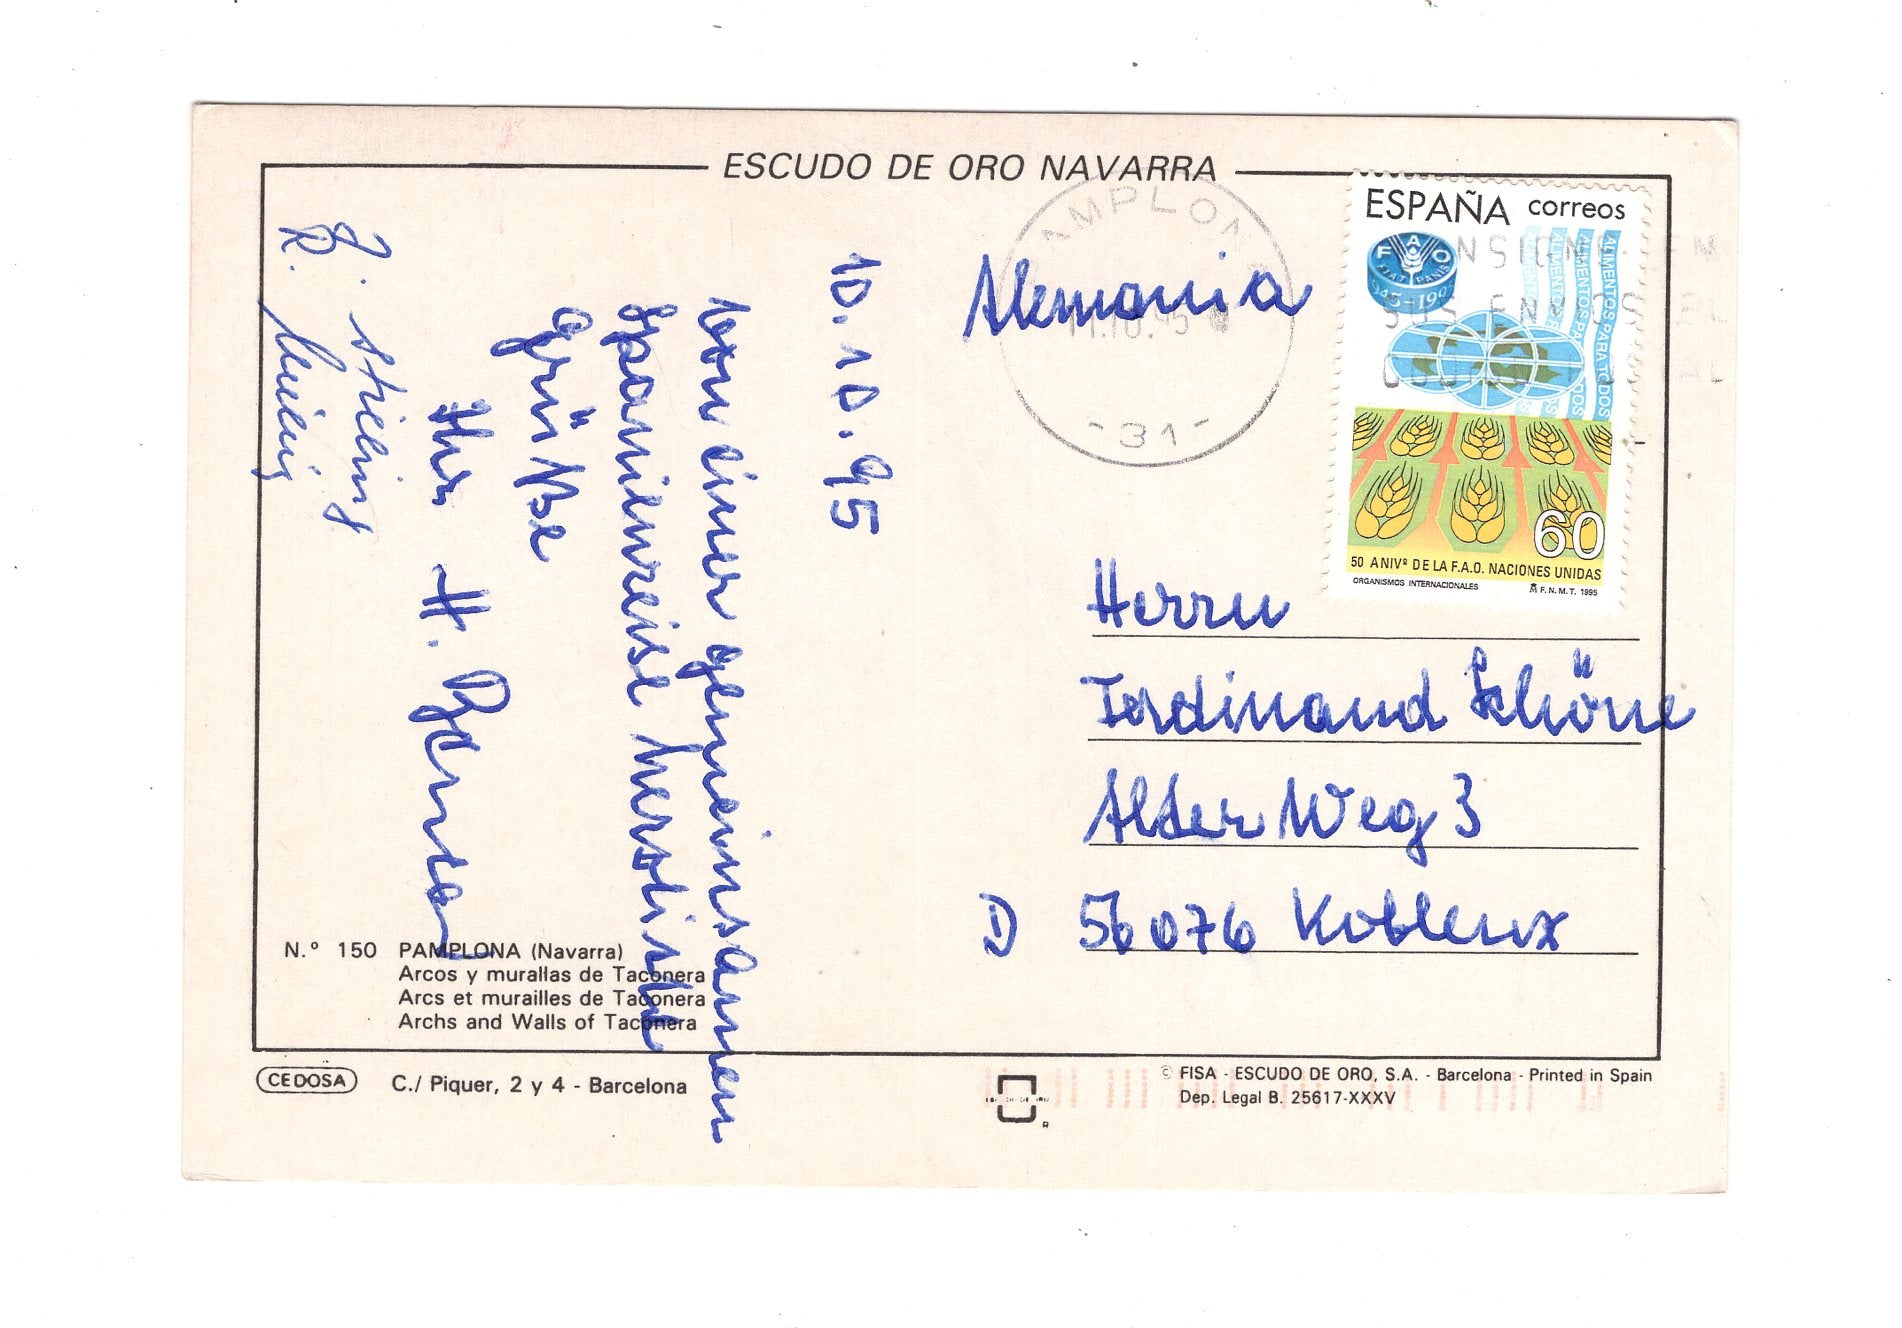 ESCUDO DE ORO NAVARRA
10.10.95
von einer gemeinsamen
Spanienreise herzliche
Grüße
Ihr H.
Alemania
Herrn
Ferdinand Schöne
Alder Weg 3
D 56076 Koblenz
PAMPLONA
11.10.95
-31-
ESPAÑA correos
FAO
FIAT PANIS
1945-1995
ALIMENTOS PARA TODOS
60
50 ANIVº DE LA F.A.O. NACIONES UNIDAS
ORGANISMOS INTERNACIONALES F.N.M.T. 1995
N.º 150 PAMPLONA (Navarra)
Arcos y murallas de Taconera
Arcs et murailles de Taconera
Archs and Walls of Taconera
CEDOSA C./ Piquer, 2 y 4 - Barcelona
© FISA - ESCUDO DE ORO, S.A. - Barcelona - Printed in Spain
Dep. Legal B. 25617-XXXV